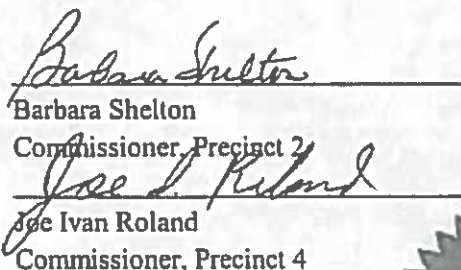 Barbara Shelton
Barbara Shelton
Commissioner, Precinct 2
Joe I Roland
Joe Ivan Roland
Commissioner, Precinct 4